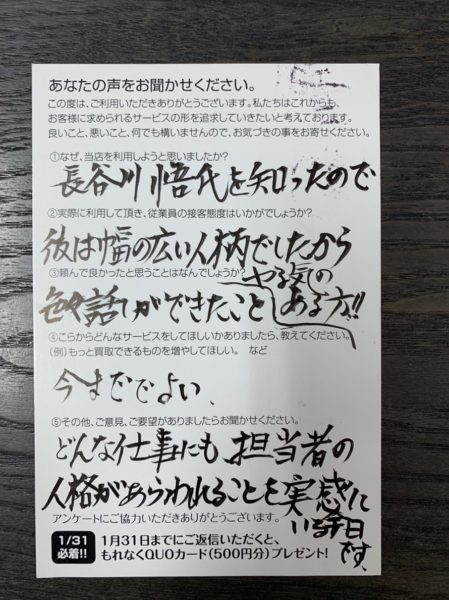 あなたの声をお聞かせください。
この度は、ご利用いただきありがとうございます。私たちはこれからも、
お客様に求められるサービスの形を追求していきたいと考えております。
良いこと、悪いこと、何でも構いませんので、お気づきの事をお寄せください。
①なぜ、当店を利用しようと思いましたか?
長谷川悟氏を知ったので
②実際に利用して頂き、従業員の接客態度はいかがでしょうか?
彼は幅の広い人柄でしたから
③頼んで良かったと思うことはなんでしょうか?
やる気の
色々話しができたこと ある方!!
④こらからどんなサービスをしてほしいかありましたら、教えてください。
(例)もっと買取できるものを増やしてほしい。 など
今まででよい、
⑤その他、ご意見、ご要望がありましたらお聞かせください。
どんな仕事にも、担当者の
人格があらわれることを実感して
アンケートにご協力いただきありがとうございます。
いる今日
です、
1/31
必着!!
1月31日までにご返信いただくと、
もれなくQUOカード(500円分)プレゼント!